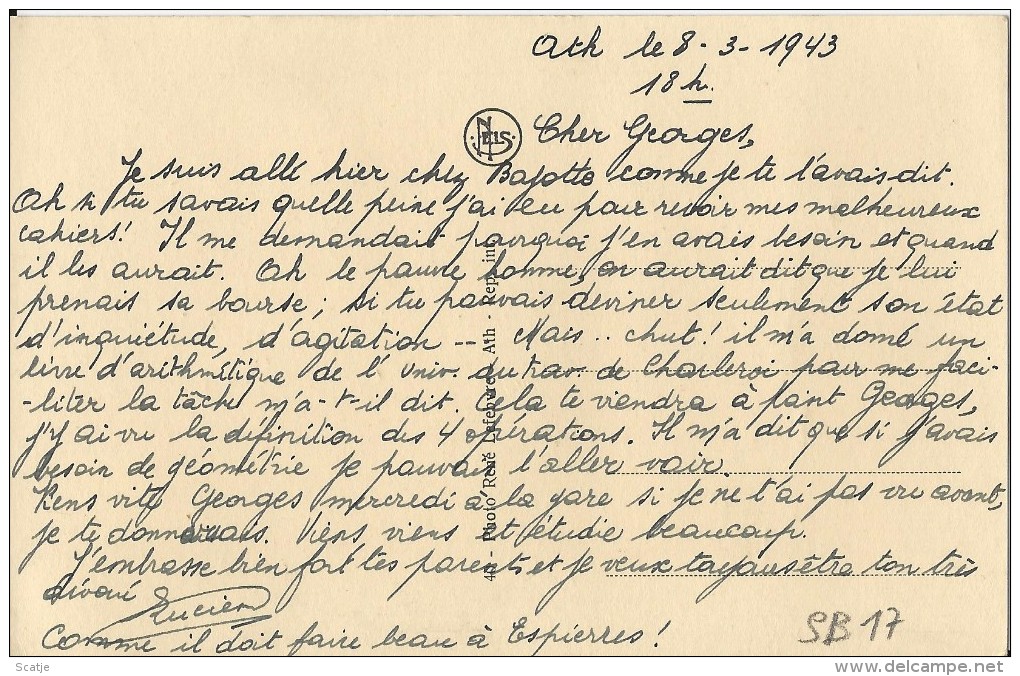 Ath le 8-3-1943
18 h.
NELS
Cher Georges,
Je suis allé hier chez Bajotto comme je te l'avais dit.
Ah si tu savais quelle peine j'ai eu pour revoir mes malheureux
cahiers! Il me demandait pourquoi j'en avais besoin et quand
il les aurait. Ah le pauvre homme, on aurait dit que je lui
prenais sa bourse; si tu pouvais deviner seulement son état
d'inquiétude, d'agitation -- Mais .. chut! il m'a donné un
livre d'arithmétique de l'Univ. du trav. de Charleroi pour me faci-
-liter la tâche m'a-t-il dit. Cela te viendra à point Georges,
j'y ai vu la définition des 4 opérations. Il m'a dit que si j'avais
besoin de géométrie je pouvais l'aller voir.
Viens vite Georges mercredi à la gare si je ne t'ai pas vu avant,
je te donnerais. Viens viens et étudie beaucoup.
J'embrasse bien fort tes parents et je veux toujours être ton très
dévoué Lucien
Comme il doit faire beau à Espierres!
SB 17
Photo René Lefebvre, Ath - Repr. int.
Scatje
delcampe.net